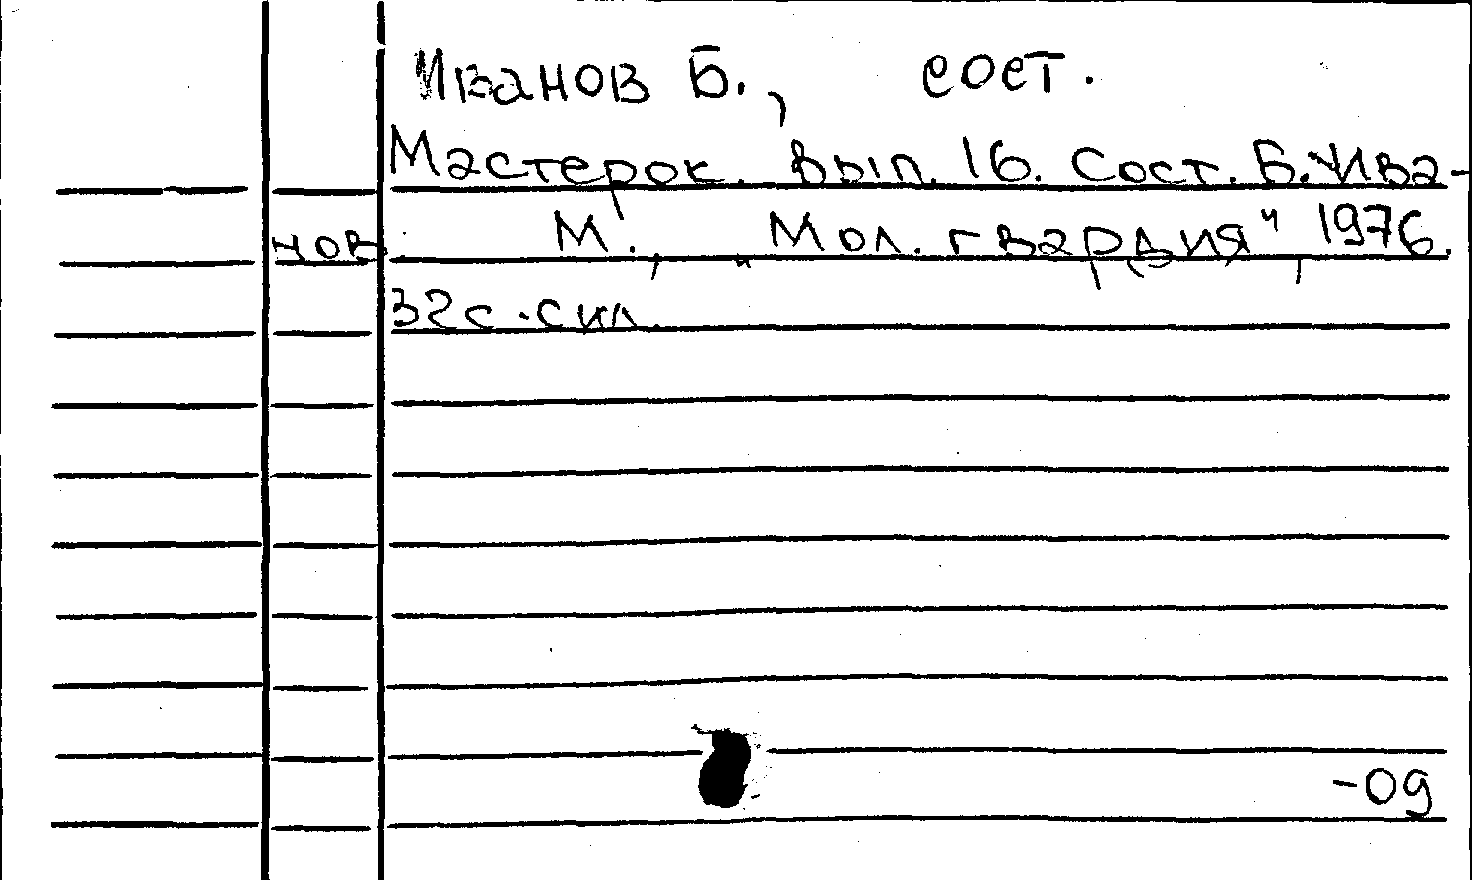 Иванов Б., сост.
Мастерок. Вып. 16. Сост. Б. Ива-
нов. М., „Мол. гвардия“, 1976.
32с. с ил.
-09